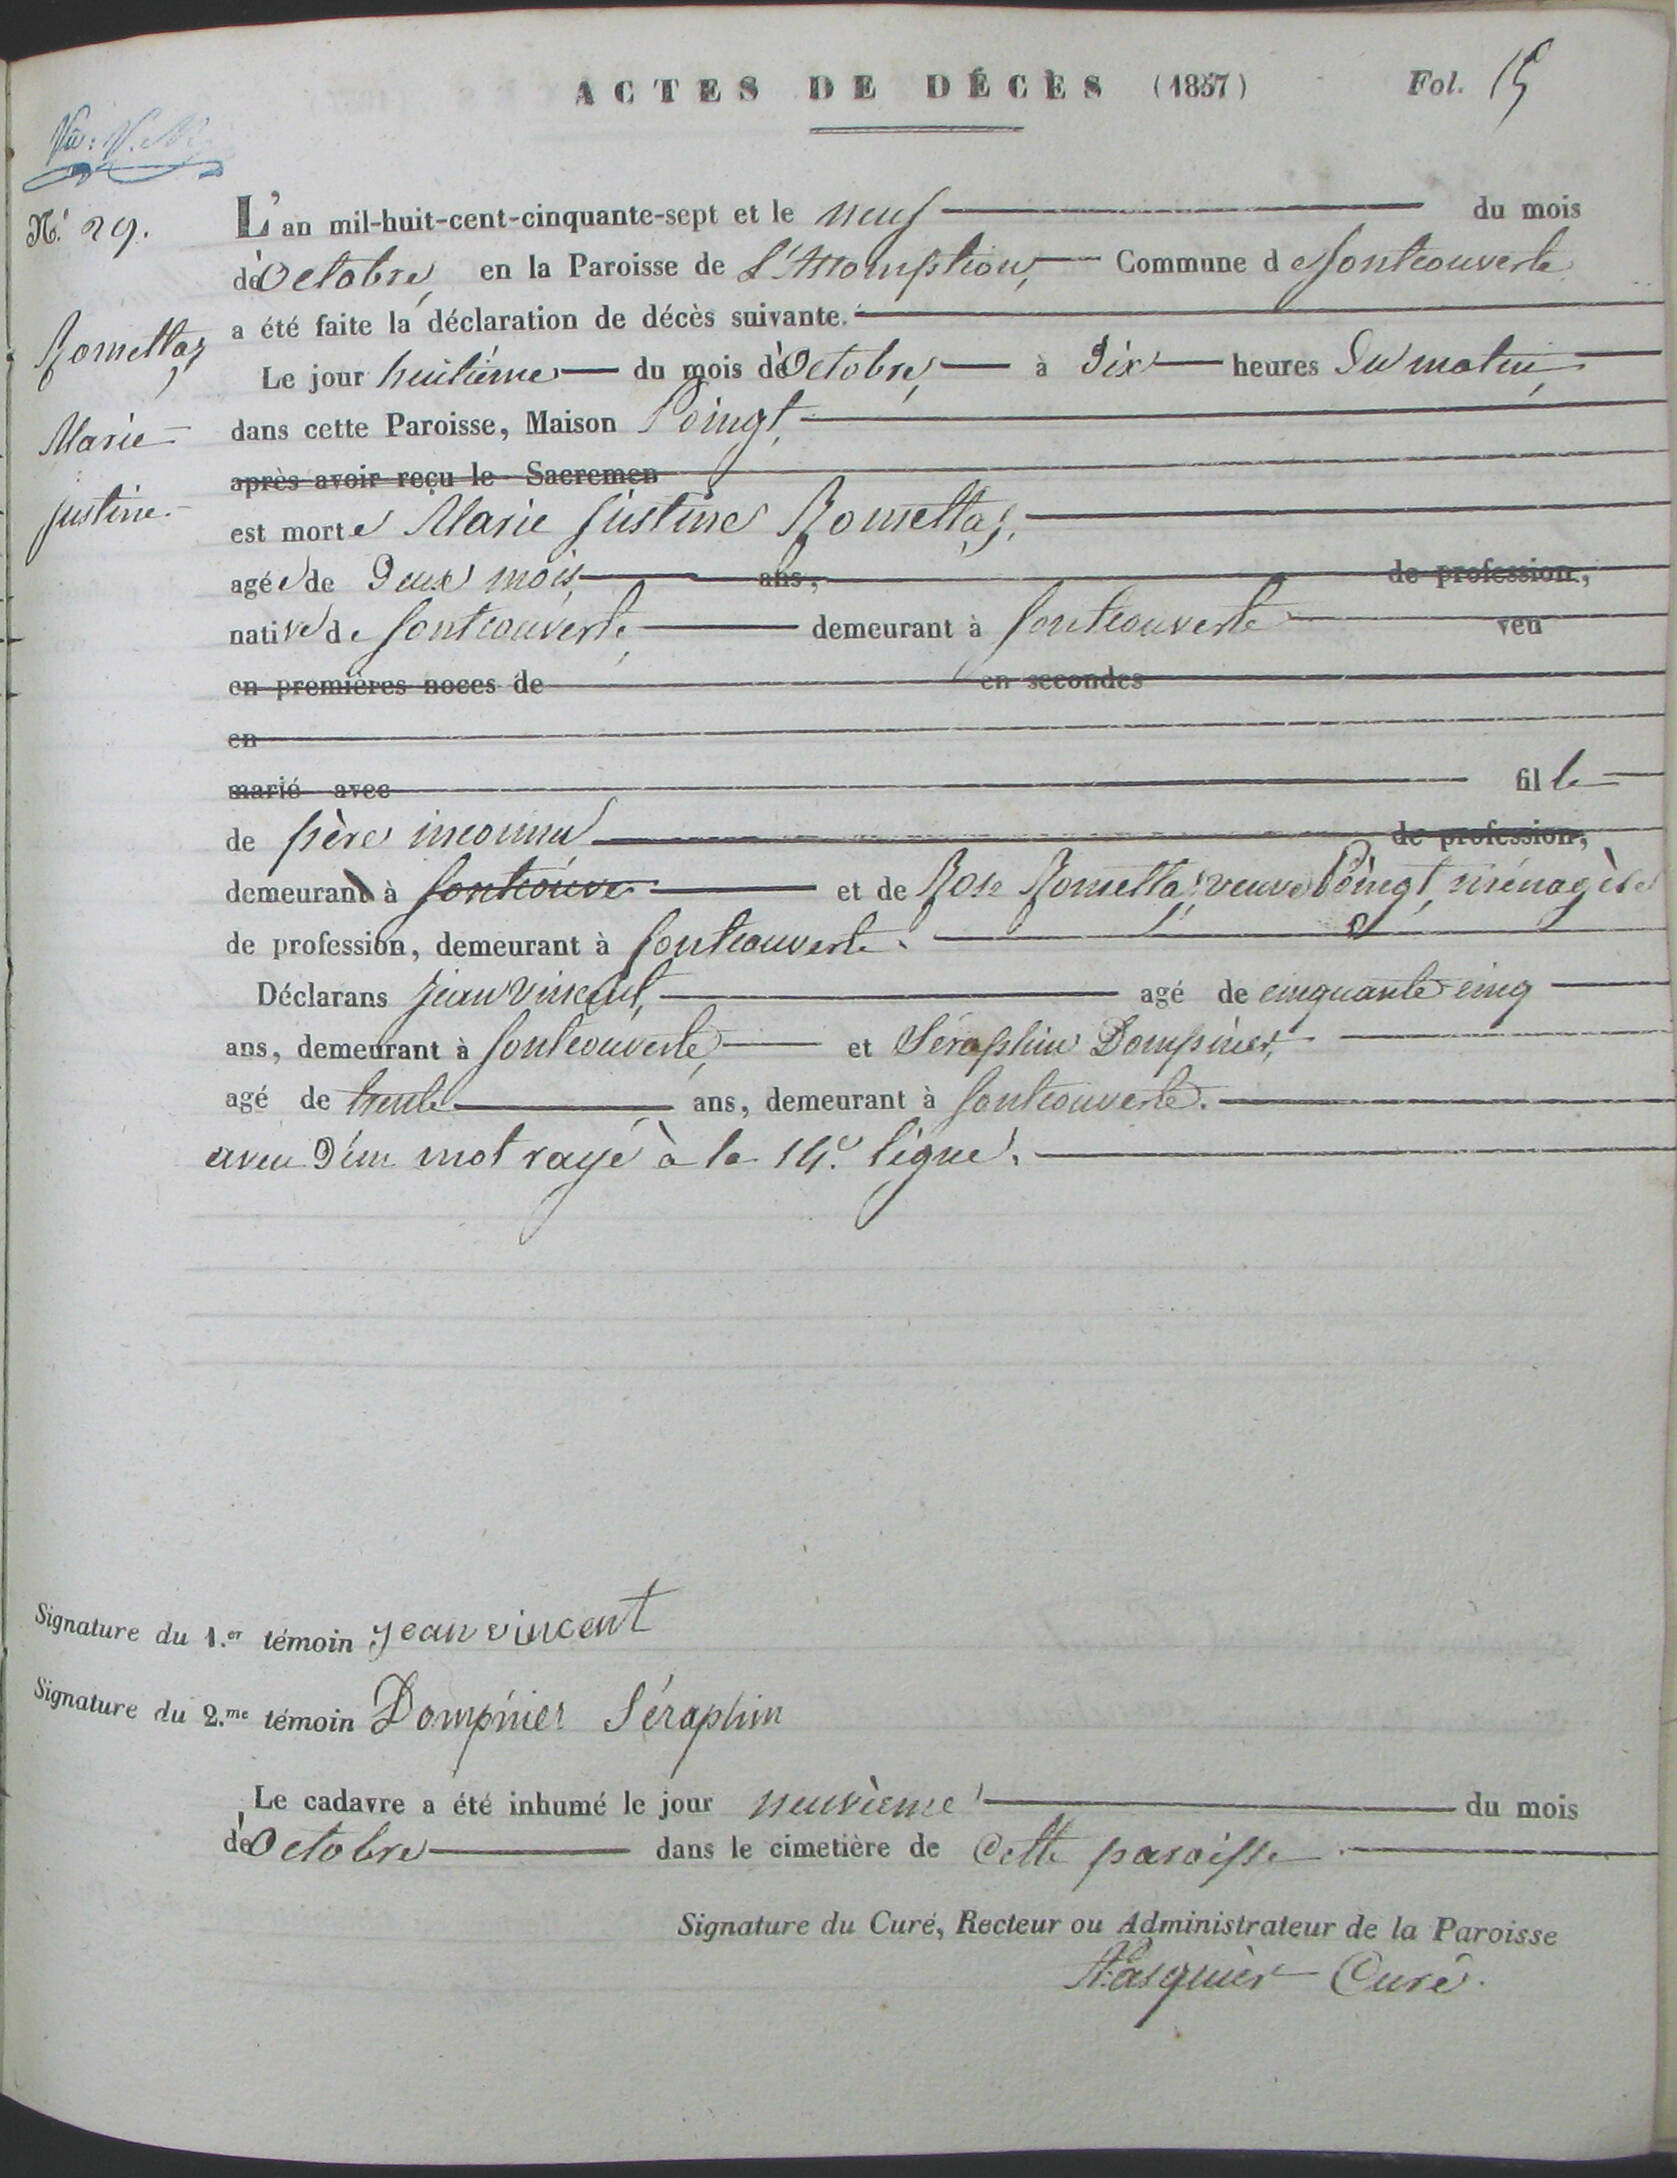 ACTES DE DÉCÈS (1857) Fol. 15
Vu:
N.º 29.
Romettaz
Marie
justine.
L'an mil-huit-cent-cinquante-sept et le neuf du mois
d'Octobre, en la Paroisse de L'Assomption, Commune de fontcouverte
a été faite la déclaration de décès suivante.
Le jour huitième du mois d'Octobre, à Dix heures Du matin,
dans cette Paroisse, Maison Poingt,
après avoir reçu le Sacremen
est morte Marie Justine Romettaz,
agée de Deux mois, ans, de profession,
native de fontcouverte, demeurant à fontcouverte veu
en premières noces de en secondes
en
marié avec fille
de père inconnu de profession,
demeurant à fontcouve et de Rose Romettaz, veuve Poingt, ménagère
de profession, demeurant à fontcouverte.
Déclarans Jean Vincent, agé de cinquante-cinq
ans, demeurant à fontcouverte, et Séraphin Dompnier,
agé de trente ans, demeurant à fontcouverte.
aveu D'un mot rayé à la 14.e ligne.
Signature du 1.er témoin jean vincent
Signature du 2.me témoin Dompnier Séraphin
Le cadavre a été inhumé le jour neuvième du mois
d'Octobre dans le cimetière de Cette paroisse
Signature du Curé, Recteur ou Administrateur de la Paroisse
Pasquier Curé.